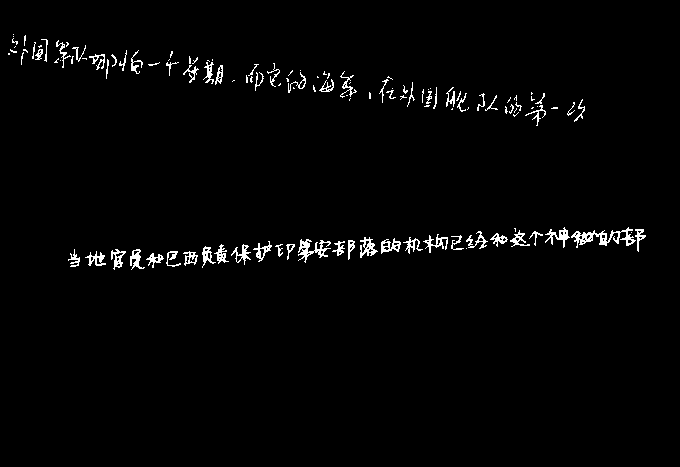 外国军队哪怕一个星期,而它的海军,在外国舰队的第一次
当地官员和巴西负责保护印第安部落的机构已经和这个神秘的部